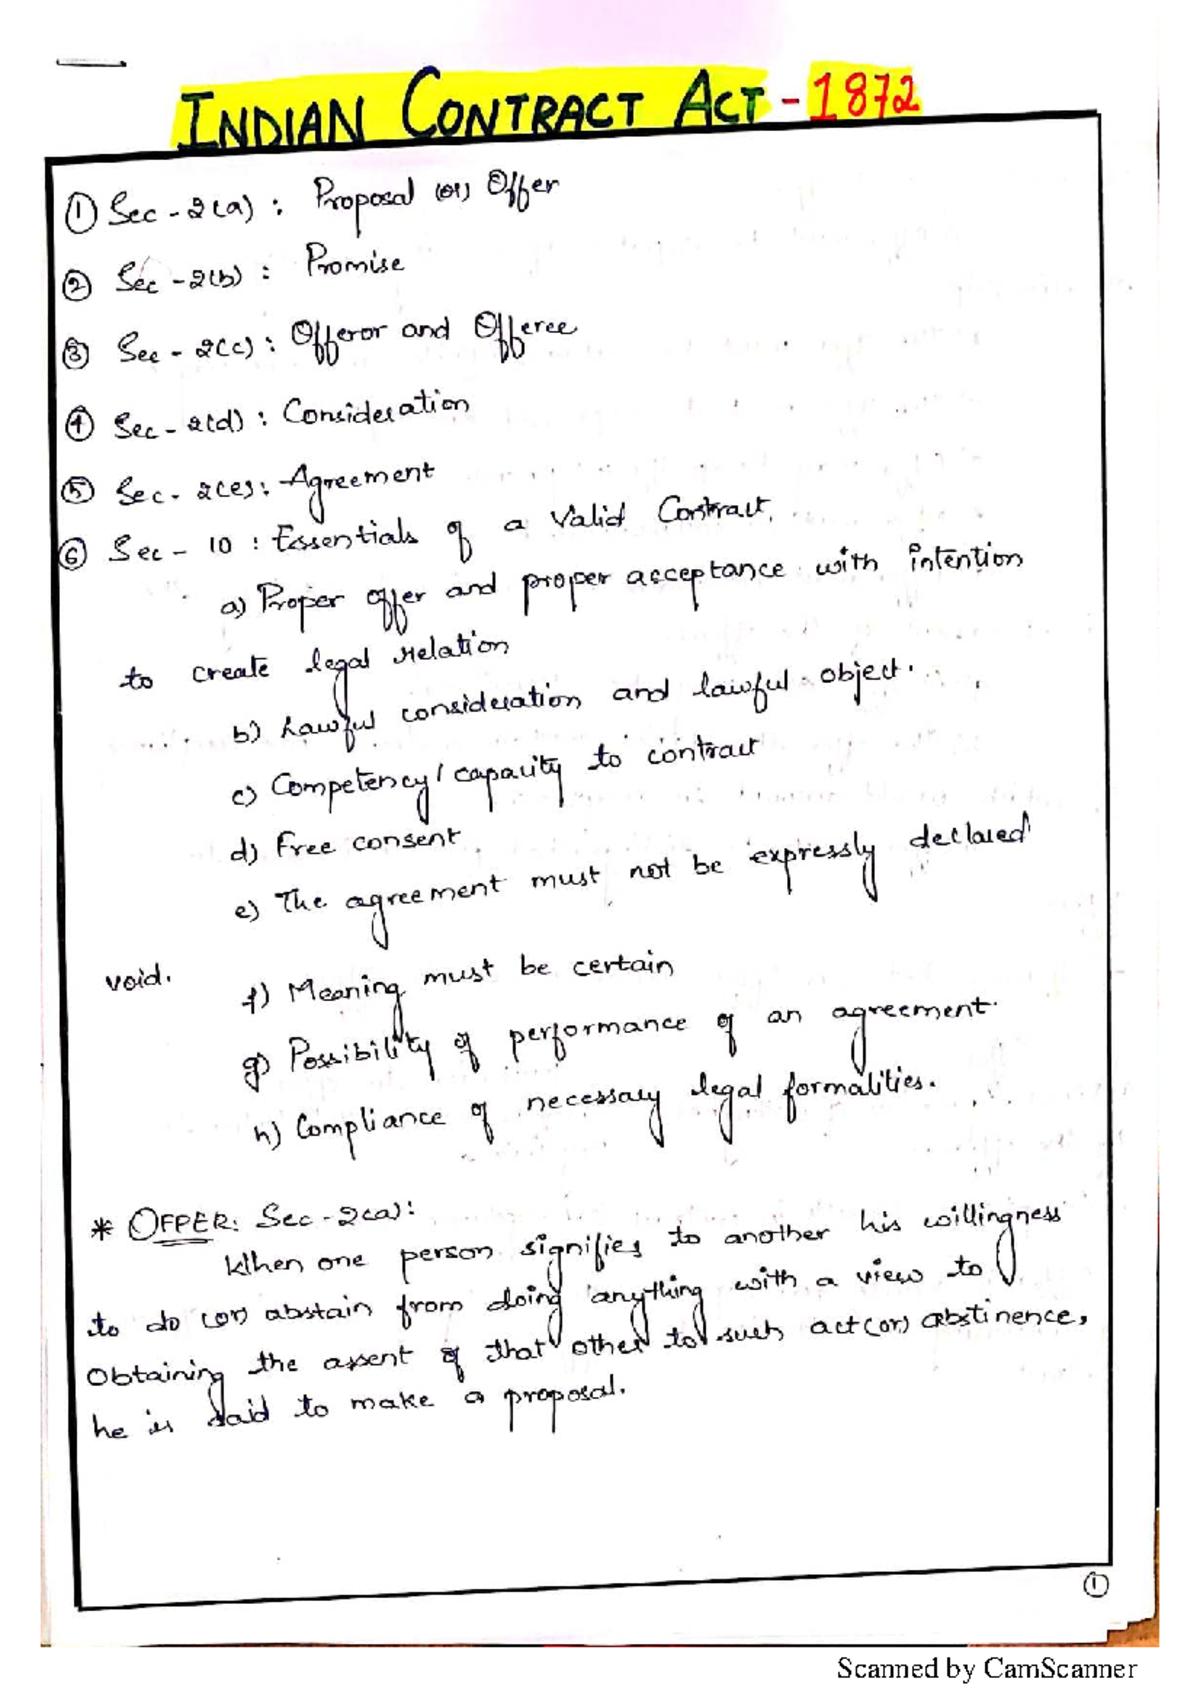 INDIAN CONTRACT ACT - 1872
① Sec - 2(a) : Proposal (or) Offer
② Sec - 2(b) : Promise
③ Sec - 2(c) : Offeror and Offeree
④ Sec - 2(d) : Consideration
⑤ Sec - 2(e) : Agreement
⑥ Sec - 10 : Essentials of a Valid Contract.
a) Proper offer and proper acceptance with intention
to create legal relation
b) Lawful consideration and lawful object.
c) Competency / capacity to contract
d) Free consent.
e) The agreement must not be expressly declared
void.
f) Meaning must be certain
g) Possibility of performance of an agreement.
h) Compliance of necessary legal formalities.
* OFFER: Sec - 2(a):
When one person signifies to another his willingness
to do (or) abstain from doing anything with a view to
Obtaining the assent of that other to such act (or) abstinence,
he is said to make a proposal.
①
Scanned by CamScanner